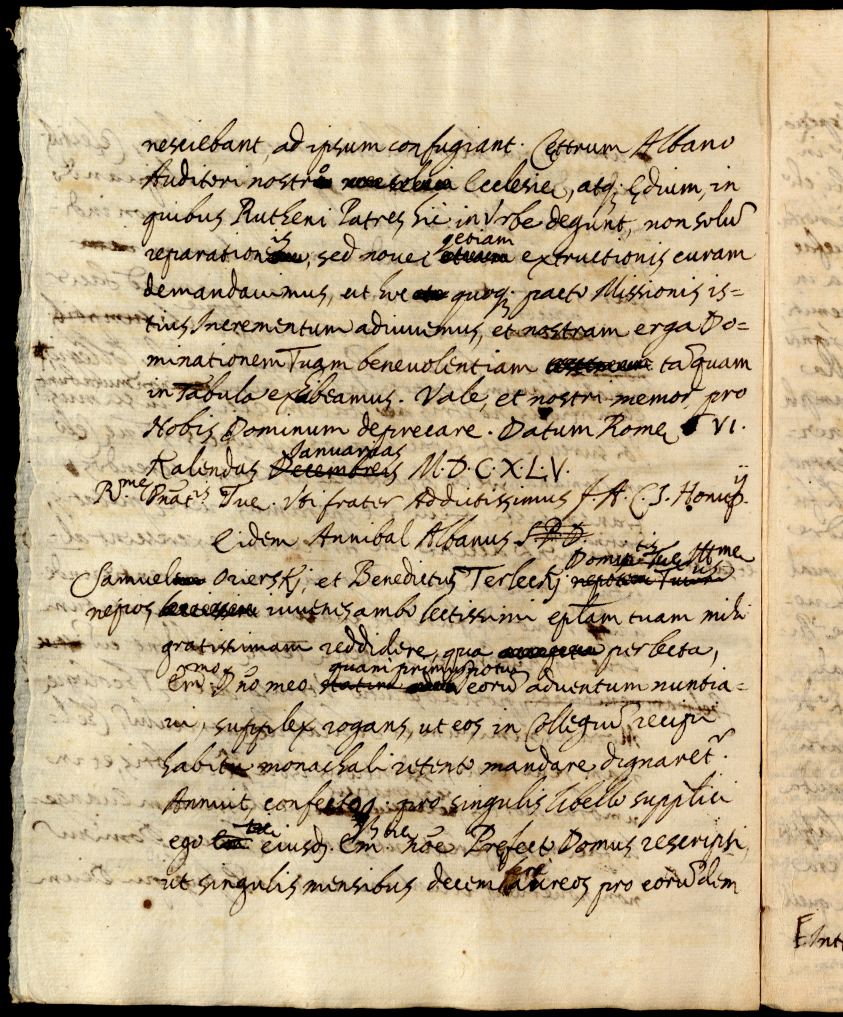 nesciebant, ad ipsum confugiant. Cettrum Albano
Auditori nostro Ecclesiæ, atq; Ædium, in
quibus Rutheni Patres hic in Urbe degunt, non solũ
reparationis, sed novæ etiam extructionis curam
demandavimus, ut hoc quoq; pacto Missionis is=
tius Incrementum adiuvemus, et nostram erga Do=
minationem Tuam benevolentiam tãquam
in Tabula exhibeamus. Vale, et nostri memor, pro
Nobis Dominum deprecare. Datum Romæ VI.
Januarias
Kalendas Decembreis M.D.C.X.L.V.
R.me Dñat.is Tuæ. Uti frater Addictissimus J. A. C. S. Honuph.ij
Eidem Annibal Albanus S.P.D.
Domin.tis Tuæ Ill.me
Samuel Ovierskj, et Benedictus Terleckj nepotem Tuum
nepos iuvenis ambo lectissimi eplãm tuam mihi
gratissimam reddidere, qua perlecta,
quam primum potui
Em.mo Dño meo statim eorũ adventum nuntia=
vi, supplex rogans, ut eos in Collegiũ recipi
habitu monachali retento mandare dignaret.r
Annuit, confectoq. pro singulis libello supplici
ego eiusd. Em.mi nõe Præfecto Domus rescripsi,
ut singulis mensibus decem aureos pro eorũdem
E. Int